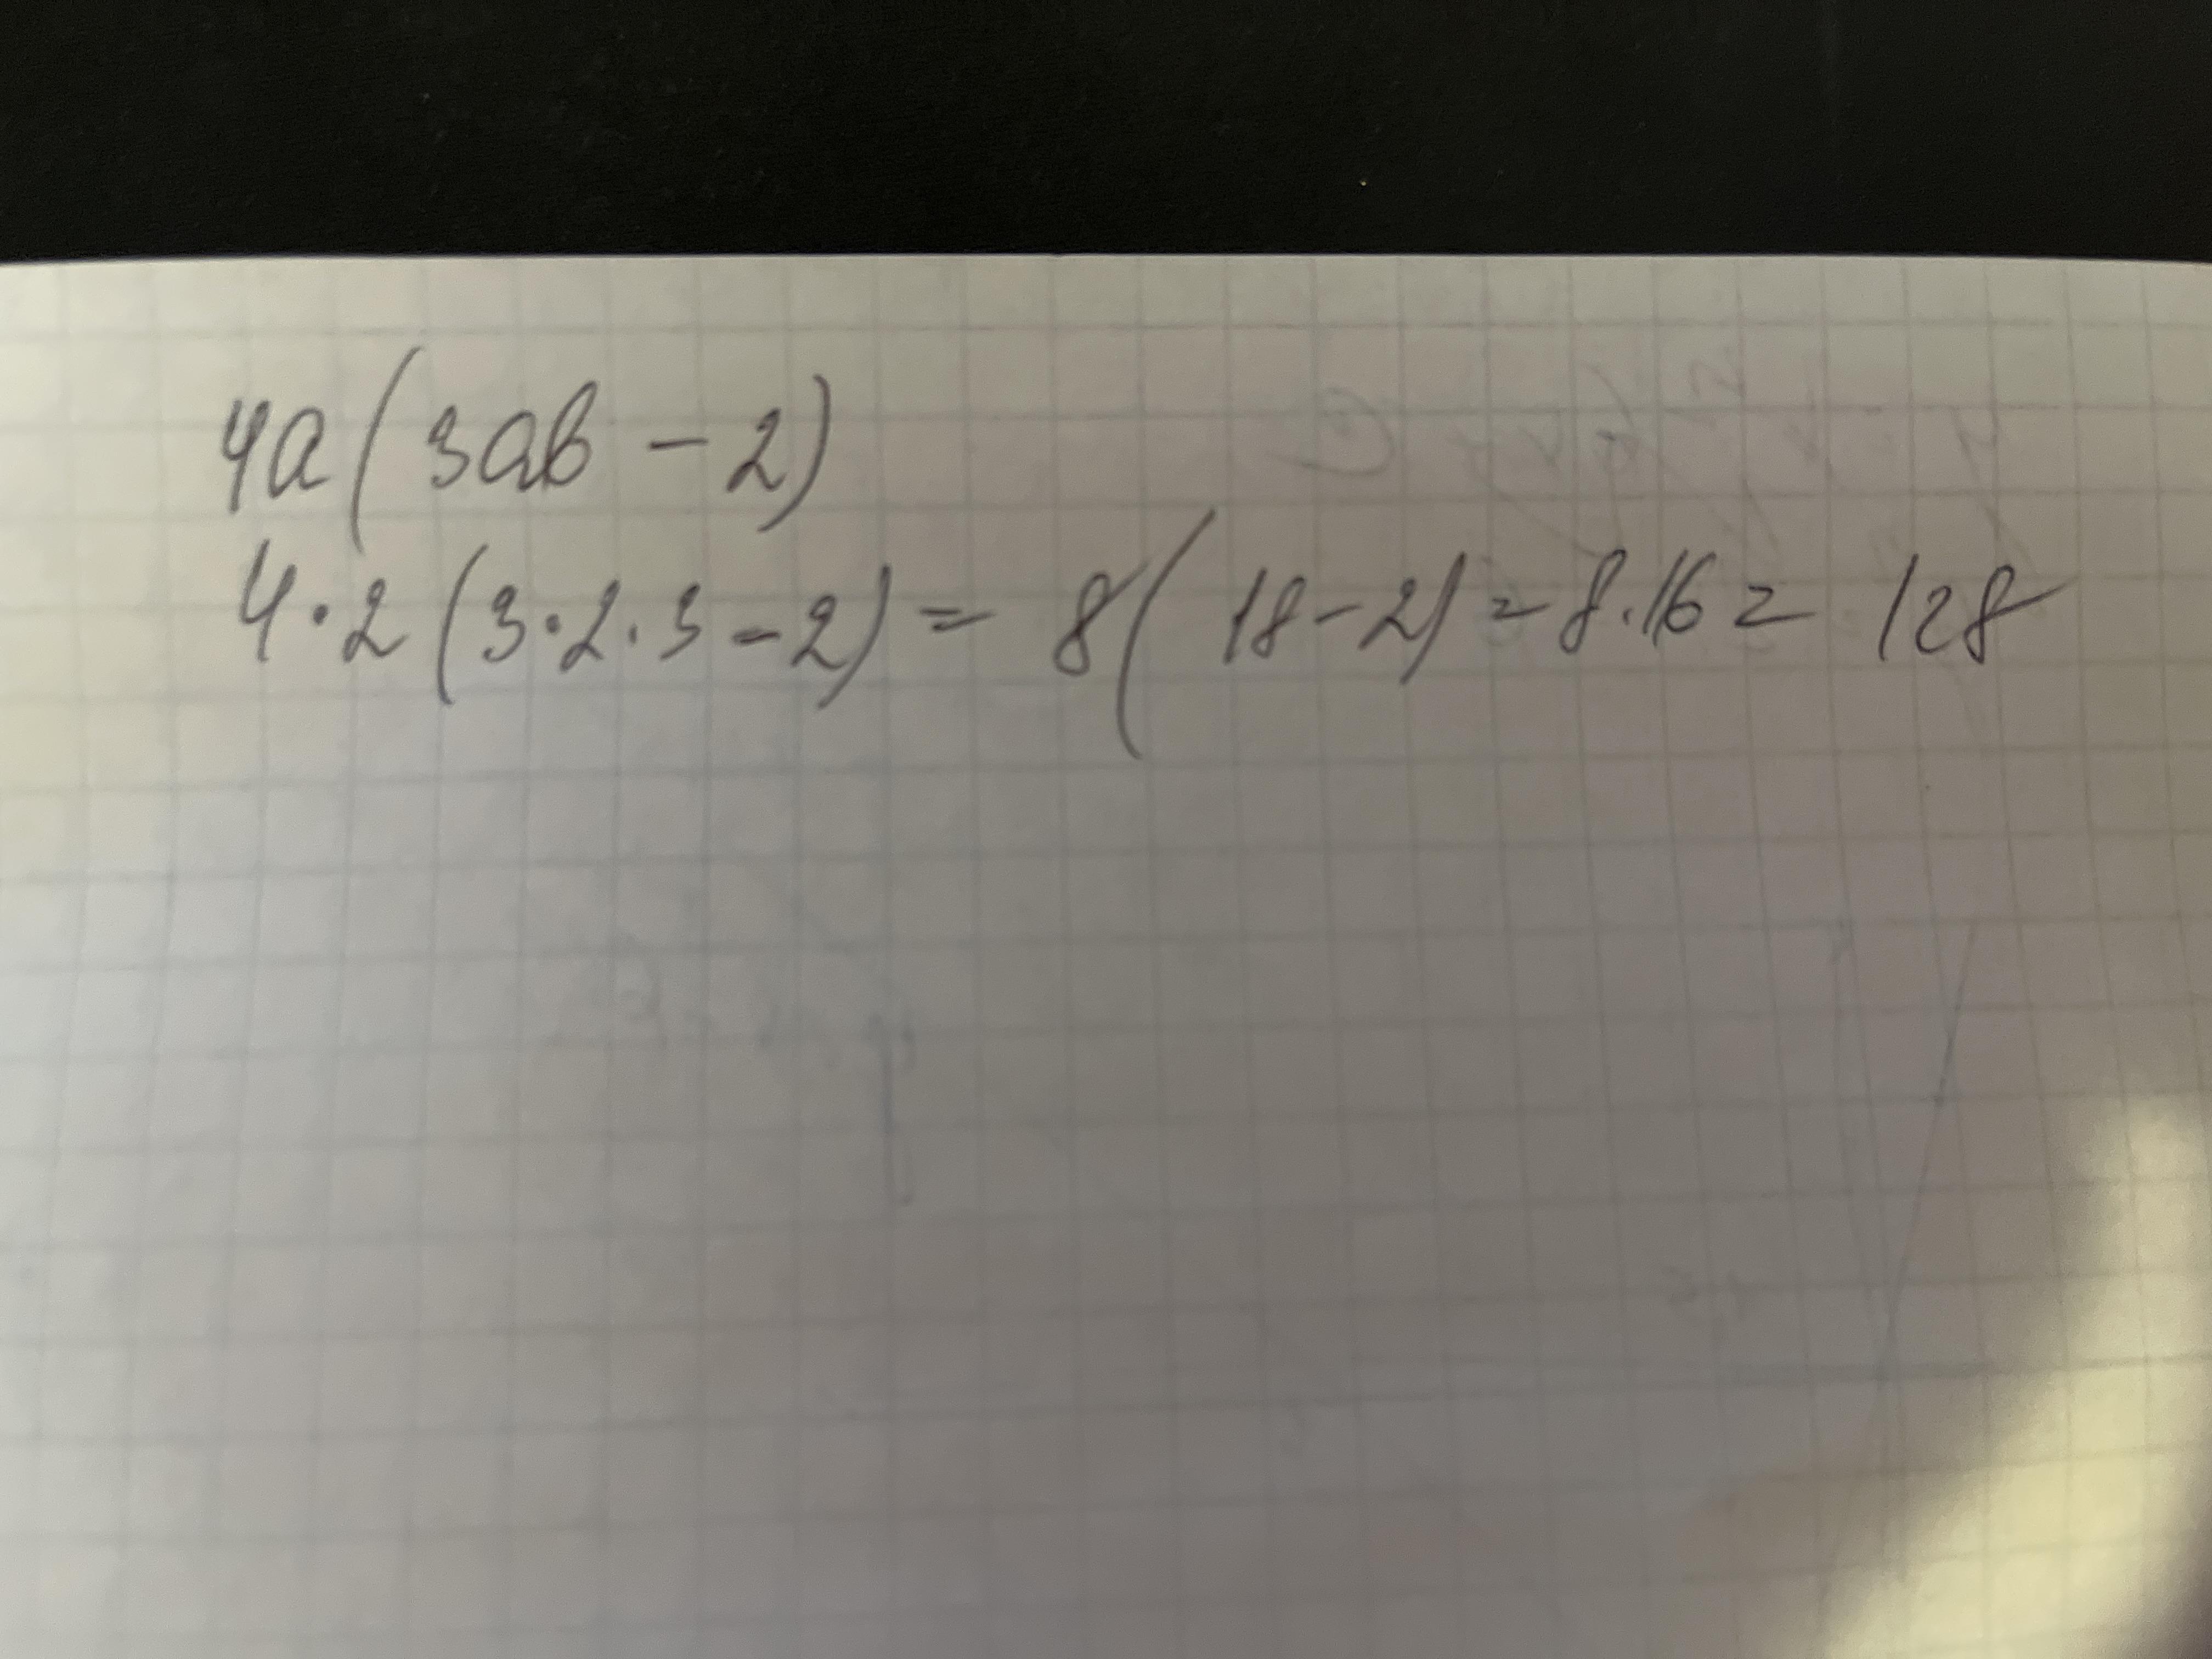 4a(3ab - 2)
4·2(3·2·3 - 2) = 8(18 - 2) = 8·16 = 128